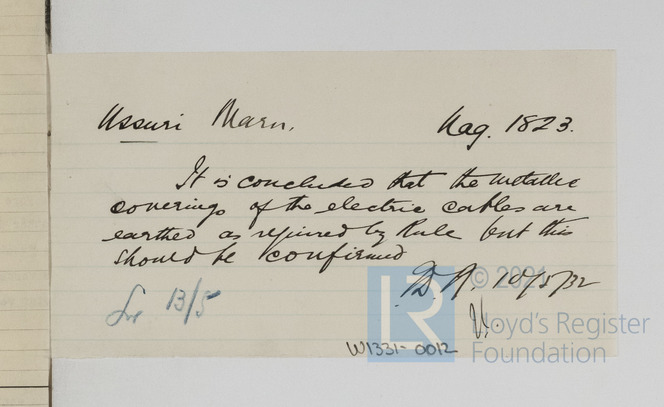 Ussuri Maru. Nag. 1823.
It is concluded that the metallic
coverings of the electric cables are
earthed as required by Rule but this
should be confirmed
10/5/32
13/5
W1331-0012
© 2021
LR
Lloyd's Register
Foundation